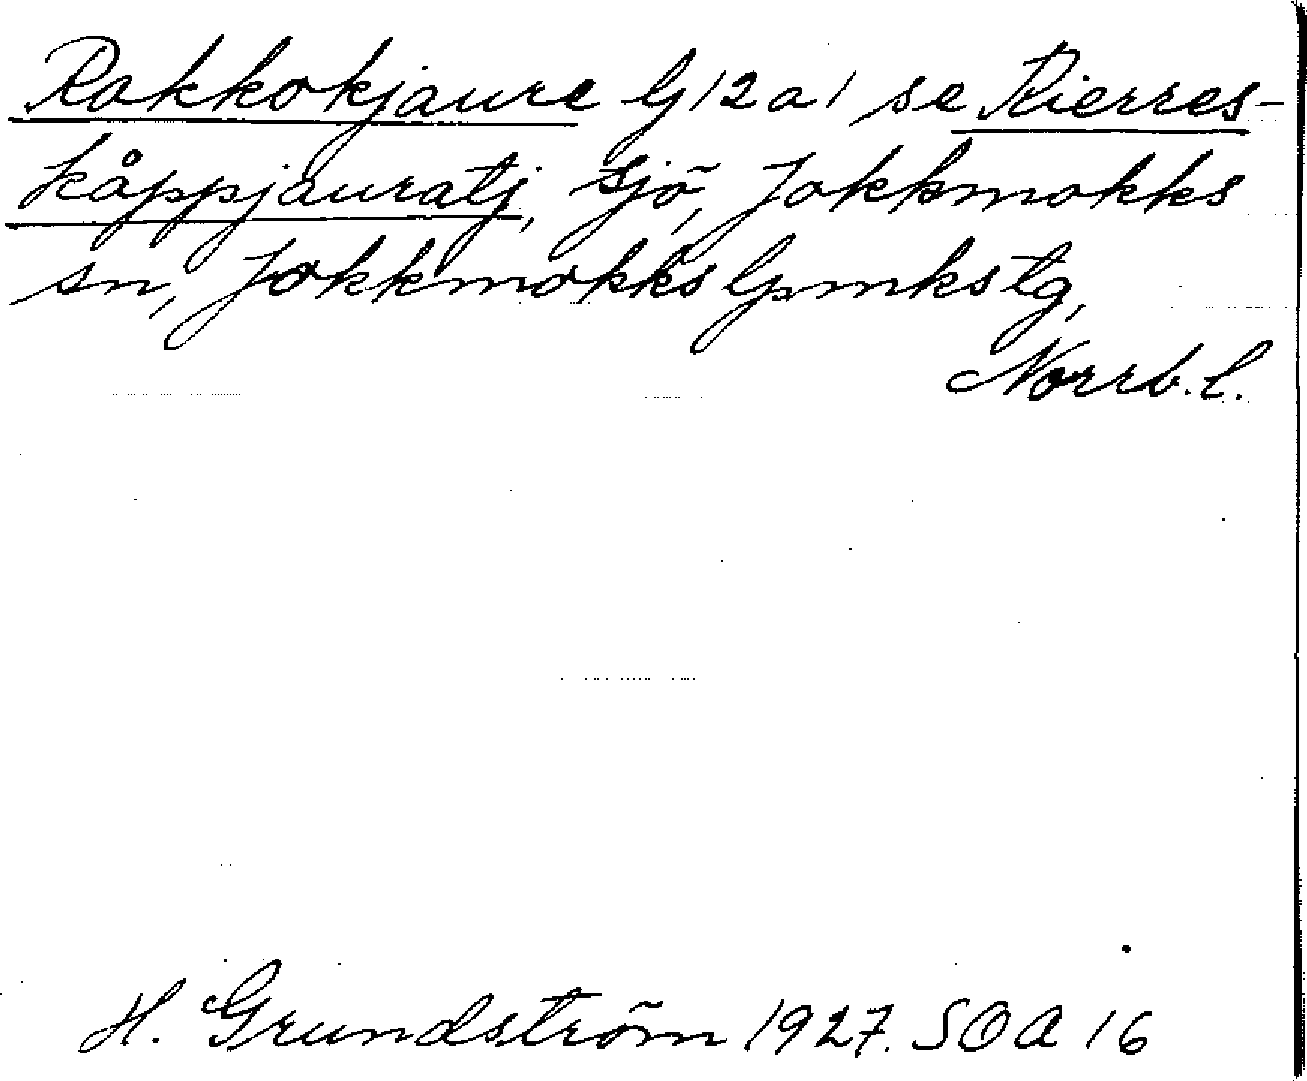 Rakkokjaure G12a1 se Rierres-
kåppjauratj, sjö, Jokkmokks
sn, Jokkmokks lpmkstg,
Norrb. l.
H. Grundström 1927. SOA 16